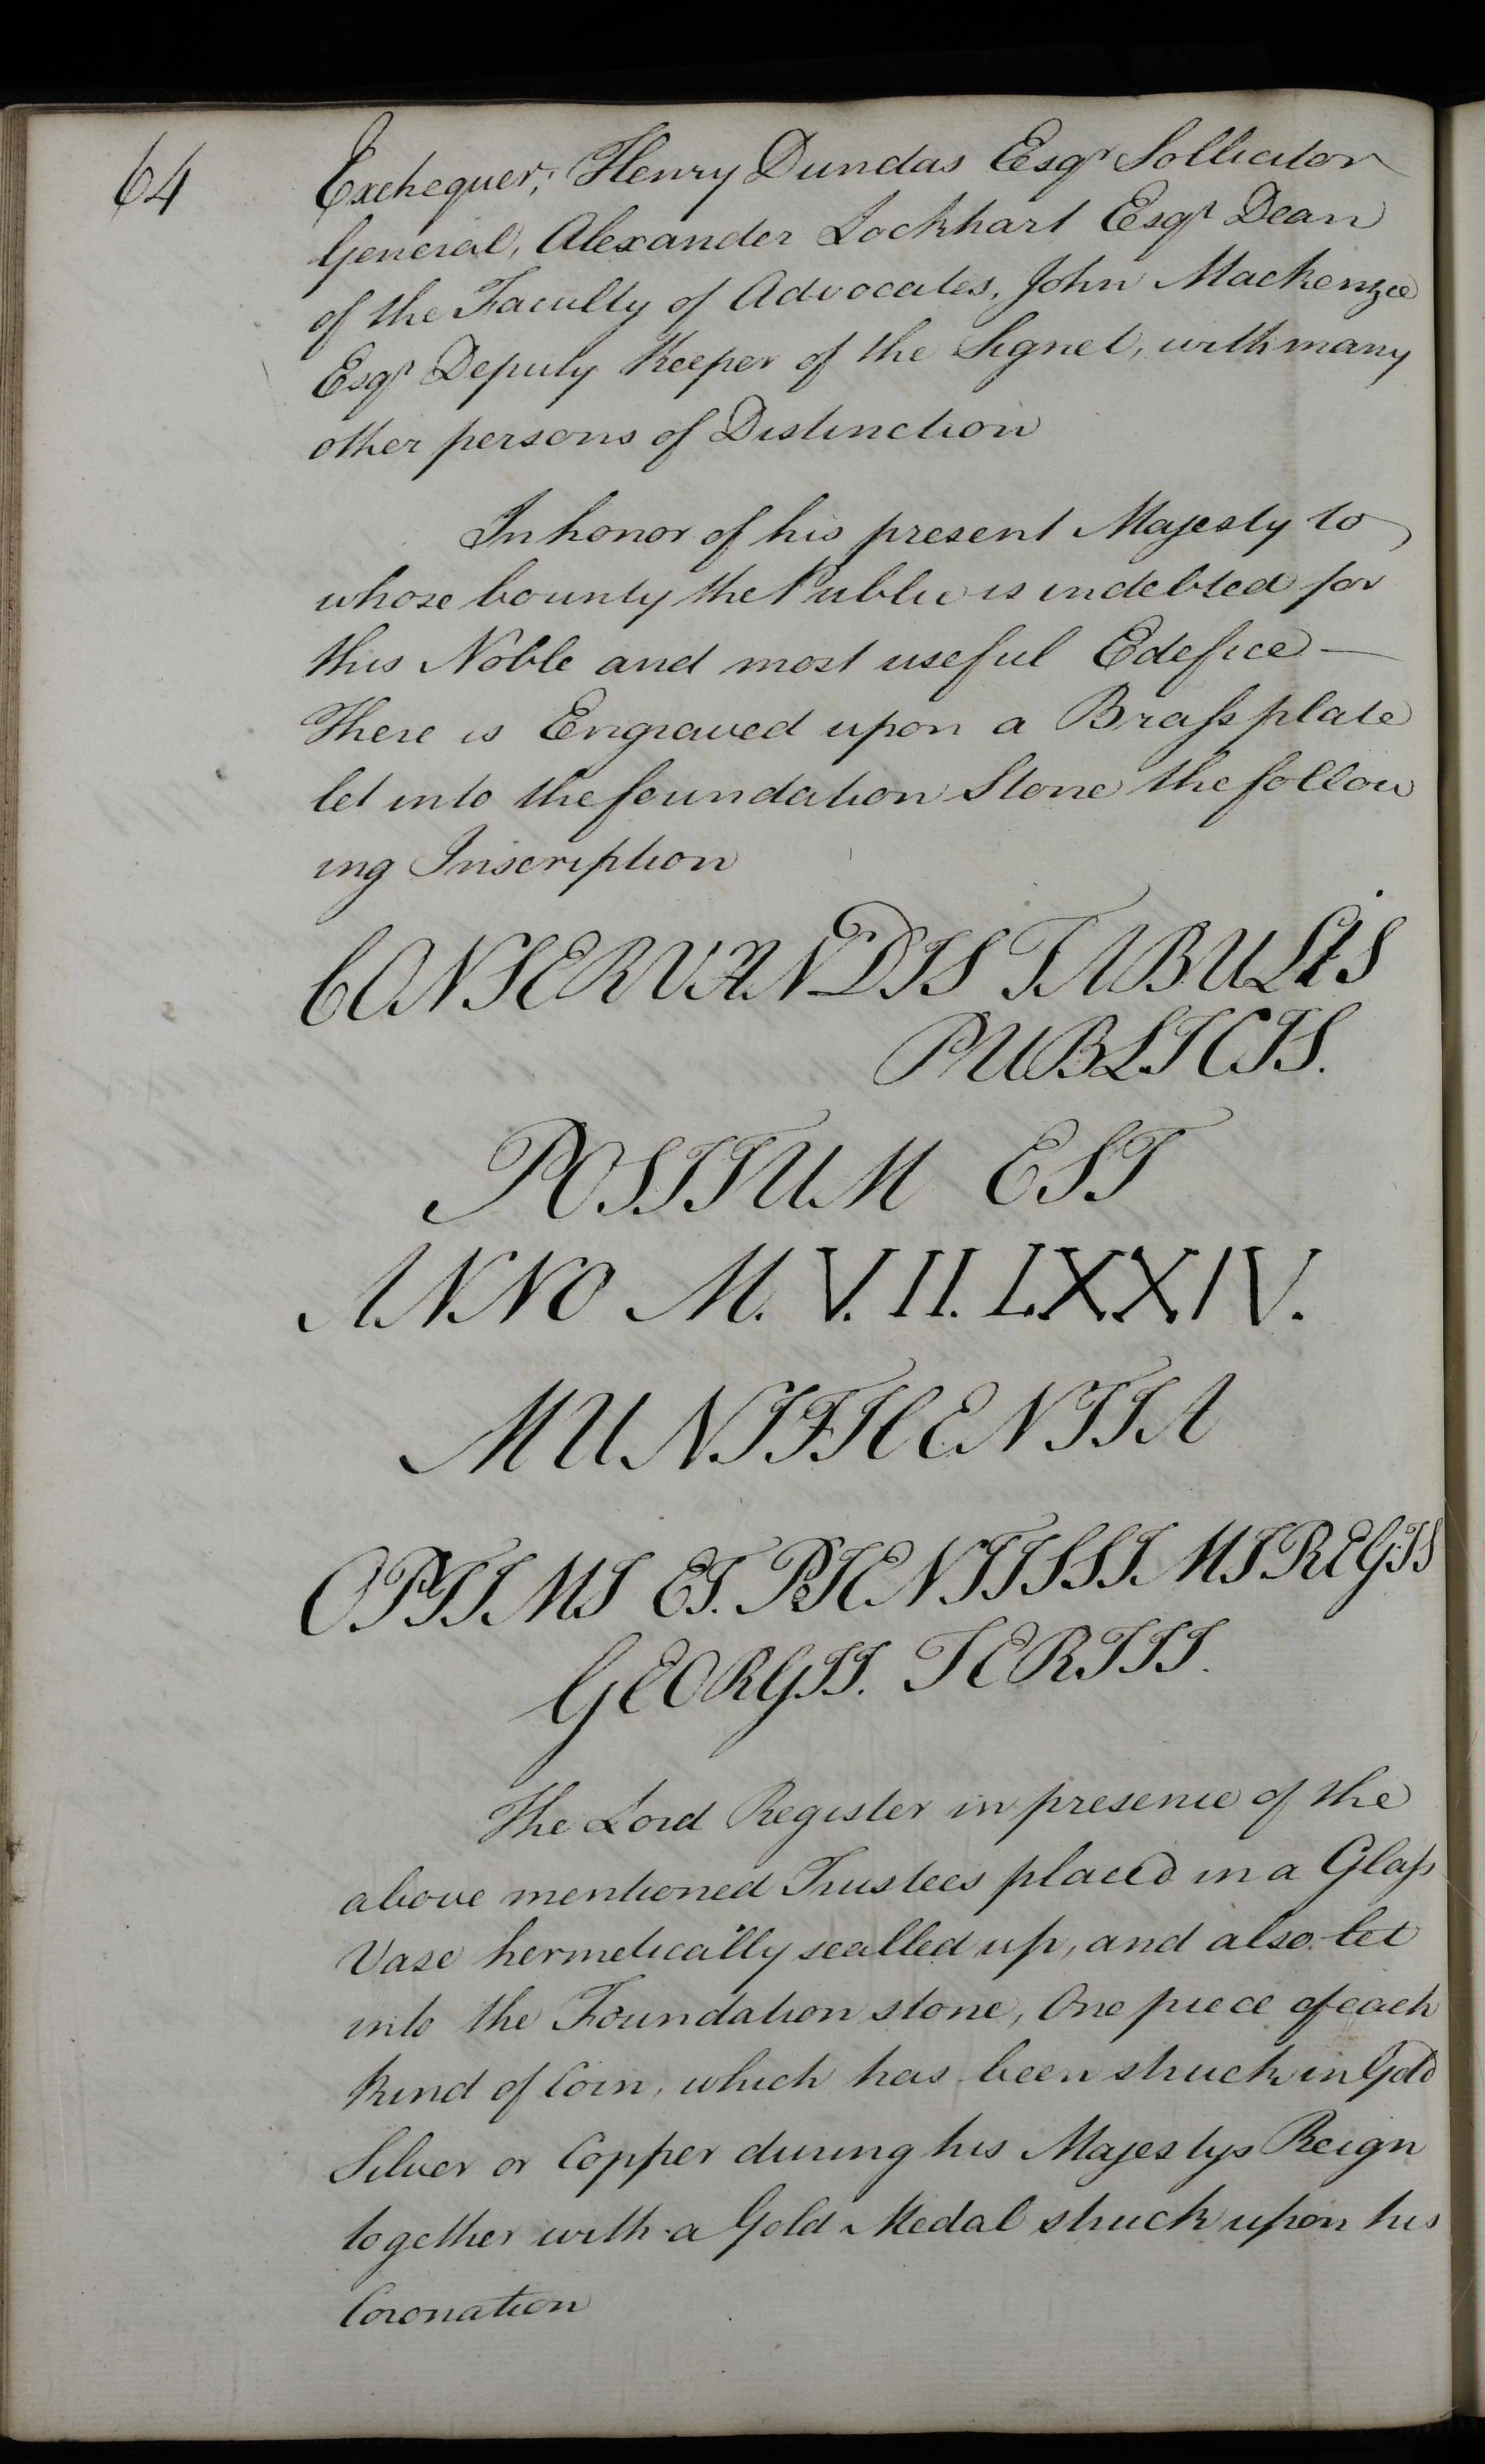 64
Exchequer; Henry Dundas Esqr Sollicitor
General, Alexander Lockhart Esqr Dean
of the Faculty of Advocates, John Mackenzie
Esqr Deputy Keeper of the Signet, with many
other persons of Distinction
In honor of his present Majesty to
whose bounty the Public is indebted for
this Noble and most useful Edefice —
There is Engraved upon a Brass plate
let into the foundation Stone the follow
ing Inscription
CONSERVANDIS TABULIS
PUBLICIS.
POSITUM EST
ANNO M. V. II. LXXIV.
MUNIFICENTIA
OPTIMI ET. PIENTISSIMI REGIS
GEORGII. TERTII.
The Lord Register in presence of the
above mentioned Trustees placed in a Glass
Vase hermetically sealled up, and also let
into the Foundation stone, One piece of each
kind of Coin, which has been struck in Gold
Silver or Copper during his Majestys Reign
together with a Gold Medal struck upon his
Coronation